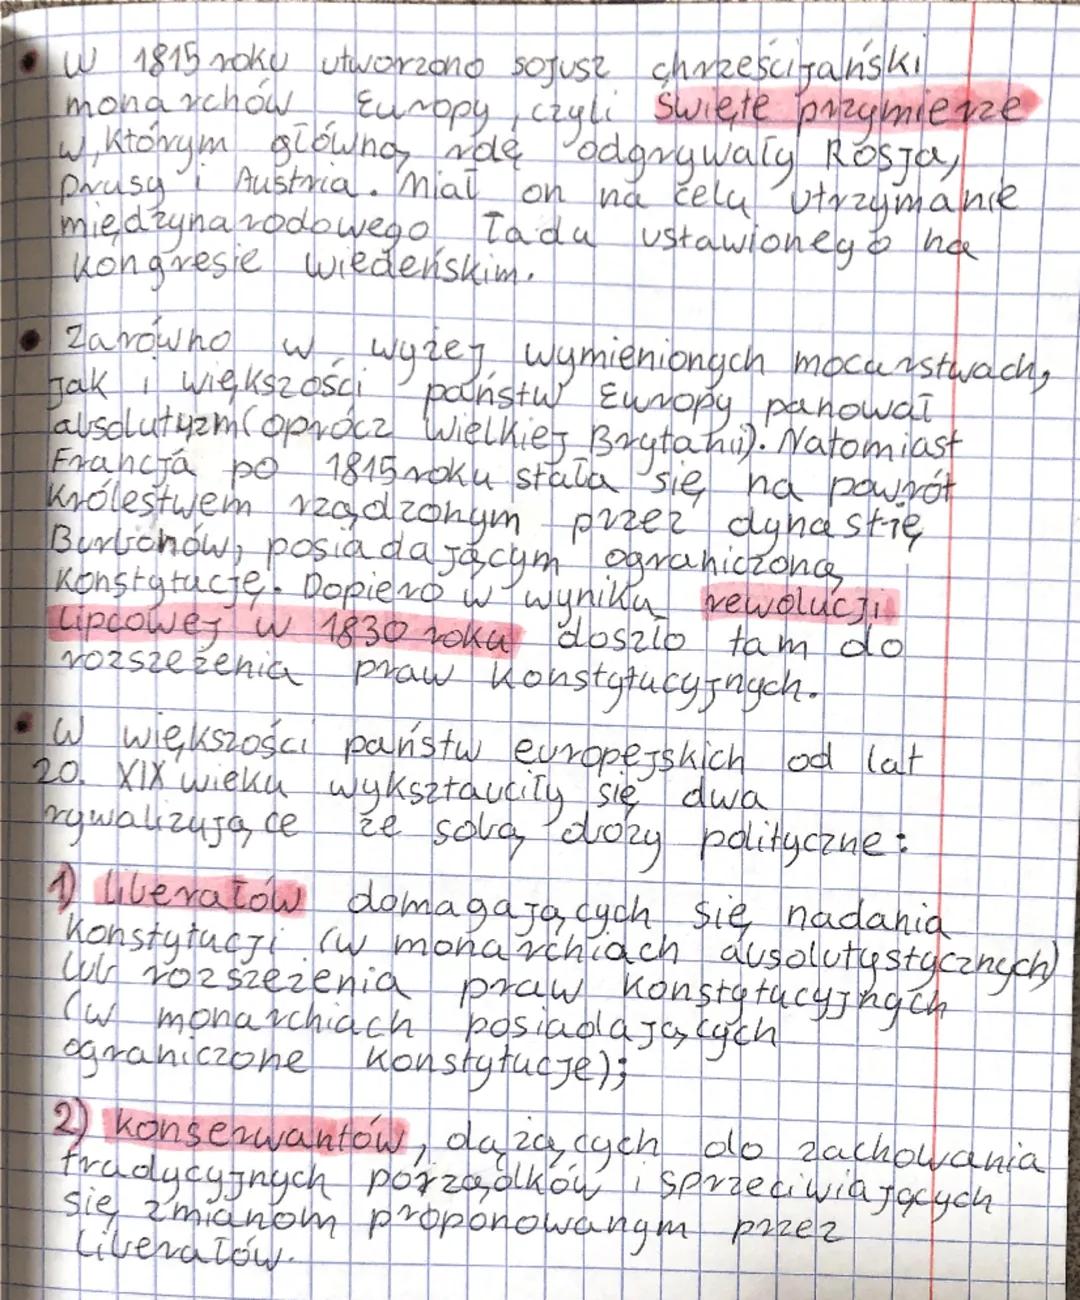 • W 1815 roku utworzono sojusz chrześcijański
monarchów Europy, czyli Święte przymierze
w, którym główną rolę odgrywały Rosja,
Prusy i Austria. Miał on na celu utrzymanie
międzynarodowego ładu ustawionego na
kongresie wiedeńskim.
• Zarówno w wyżej wymienionych mocarstwach,
jak i większości państw Europy panował
absolutyzm (oprócz Wielkiej Brytanii). Natomiast
Francja po 1815 roku stała się na powrót
Królestwem rządzonym przez dynastię
Burbonów, posiadającym ograniczoną
Konstytucję. Dopiero w wyniku rewolucji
Lipcowej w 1830 roku doszło tam do
rozszeżenia praw konstytucyjnych.
• W większości państw europejskich od lat
20. XIX wieku wykształciły się dwa
rywalizujące ze sobą obozy polityczne:
1) liberałów domagających się nadania
Konstytucji (w monarchiach absolutystycznych)
lub rozszeżenia praw konstytucyjnych
(w monarchiach posiadających
ograniczone konstytucje);
2) konserwantów, dążących do zachowania
tradycyjnych porządków i sprzeciwiających
się zmianom proponowanym przez
liberałów.